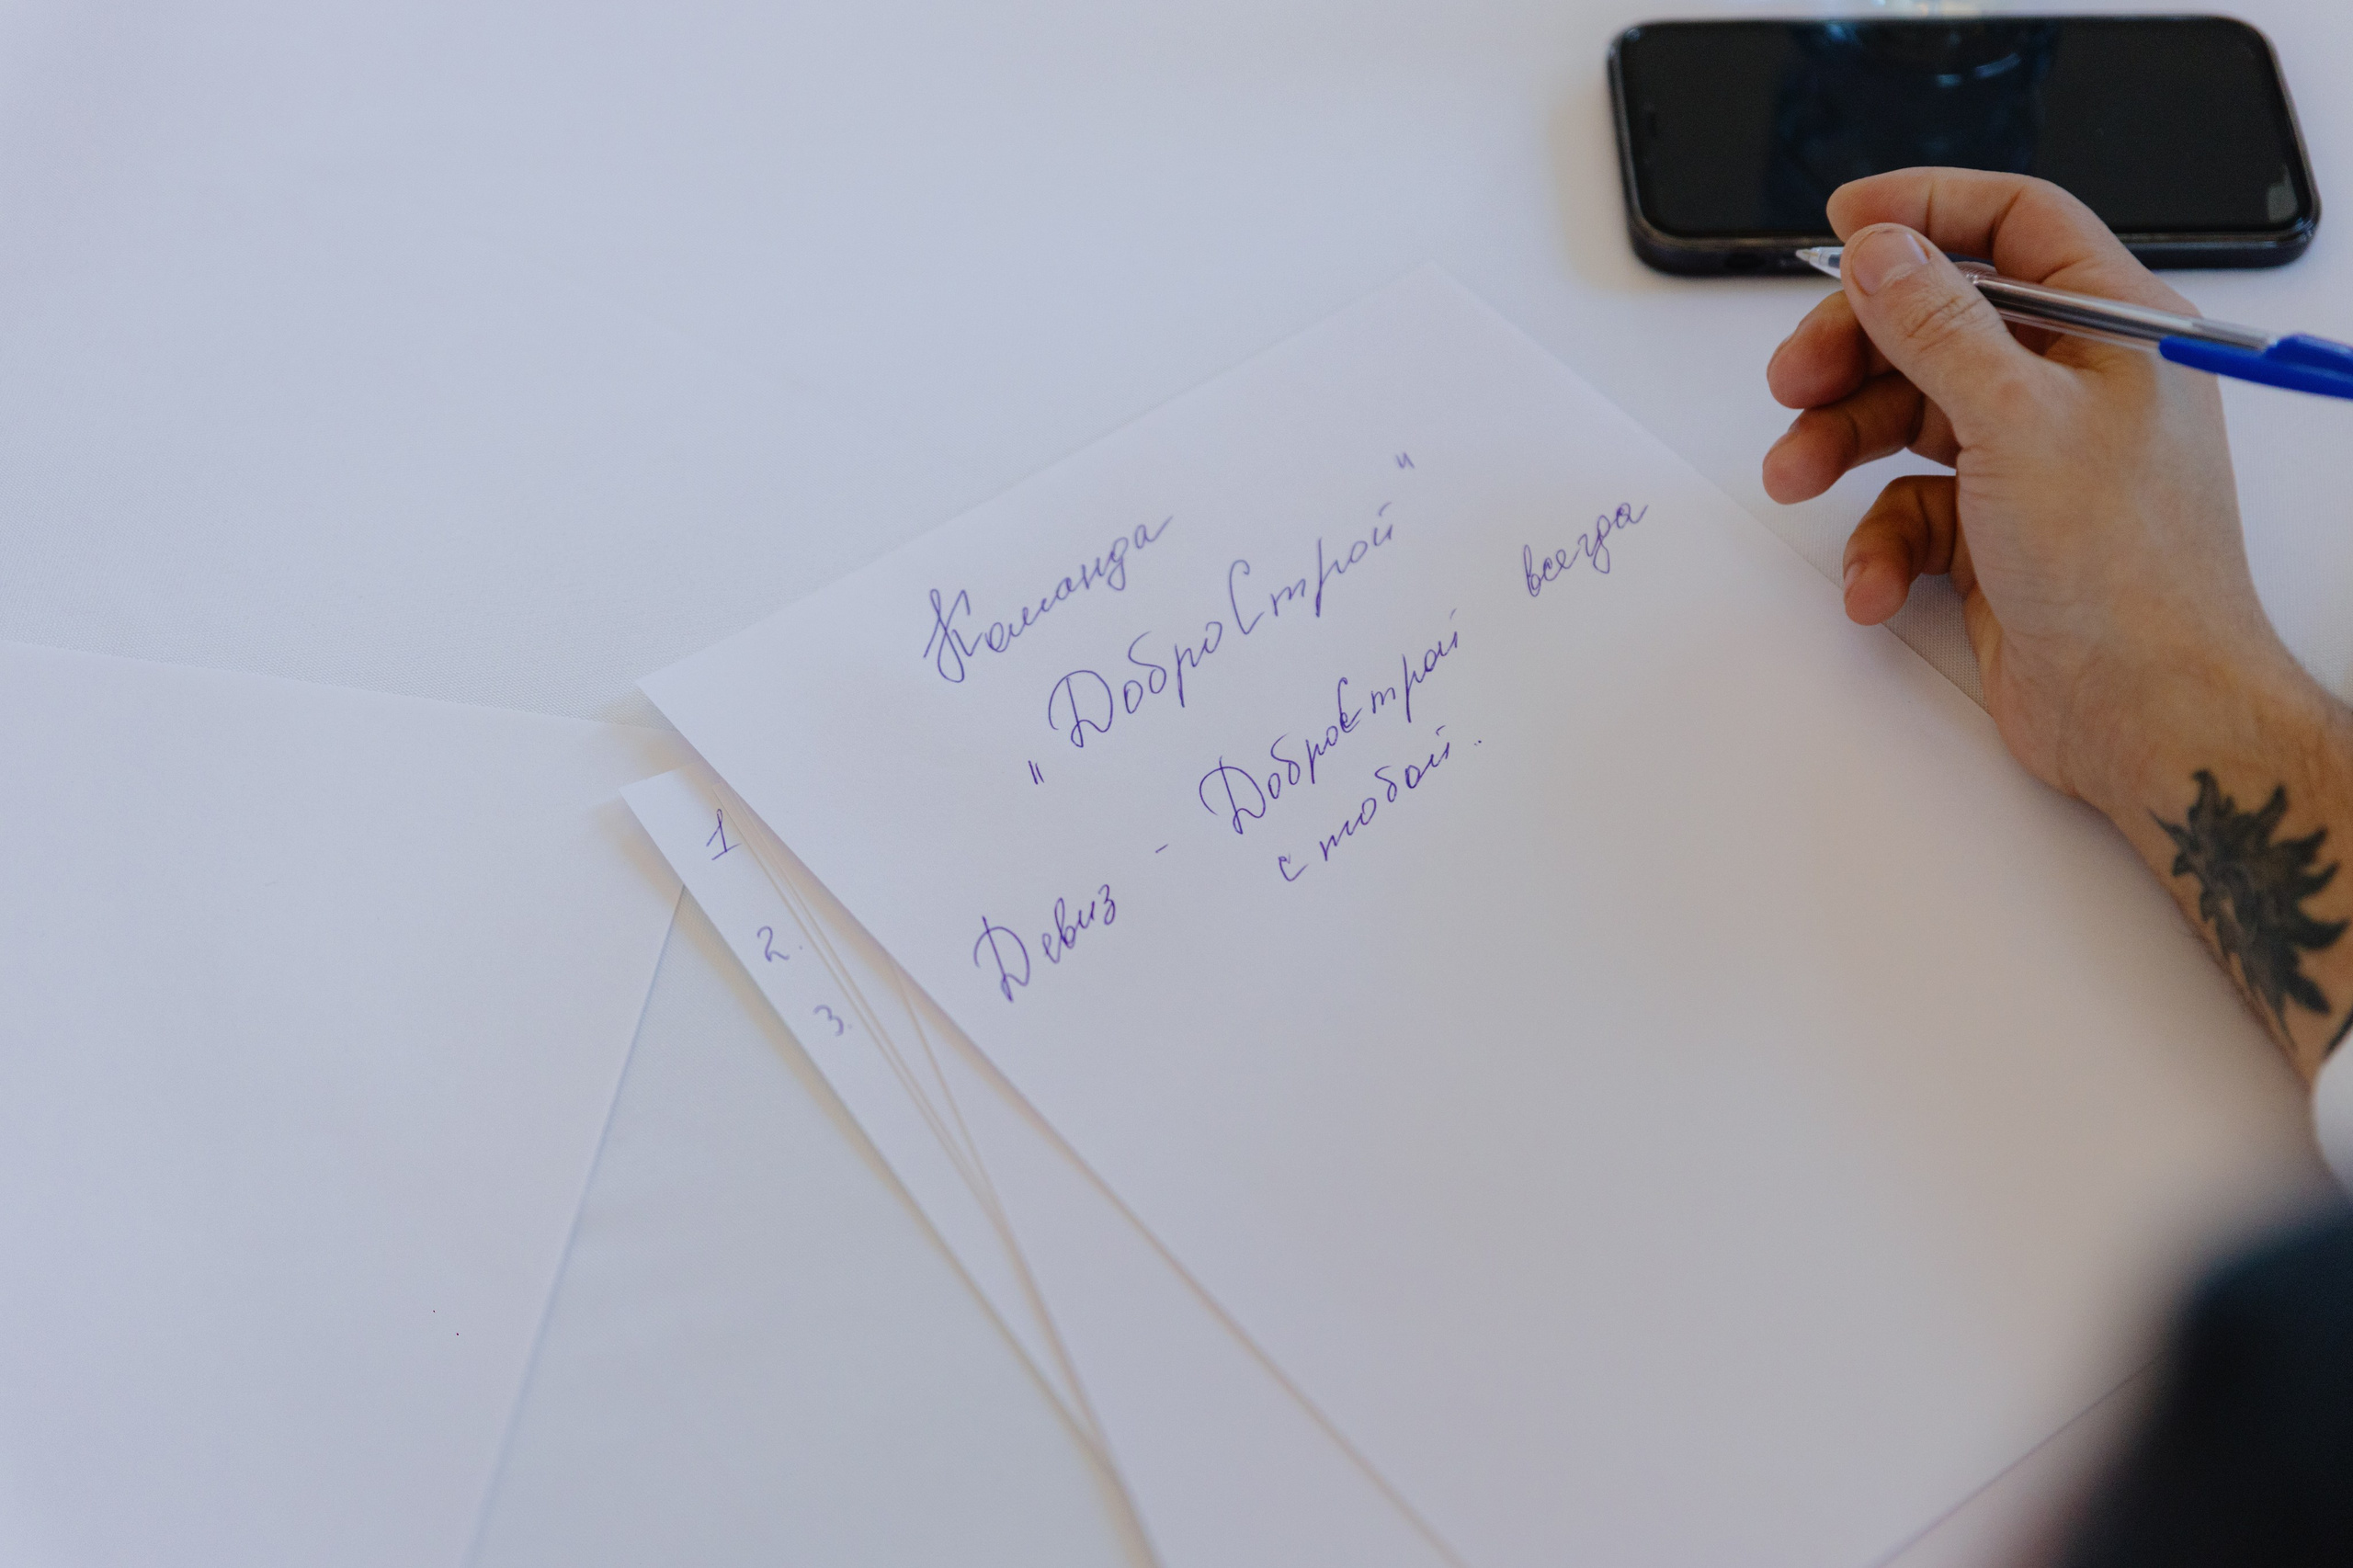 Команда
"ДоброСтрой"
Девиз - ДоброСтрой всегда
с тобой.
1
2.
3.